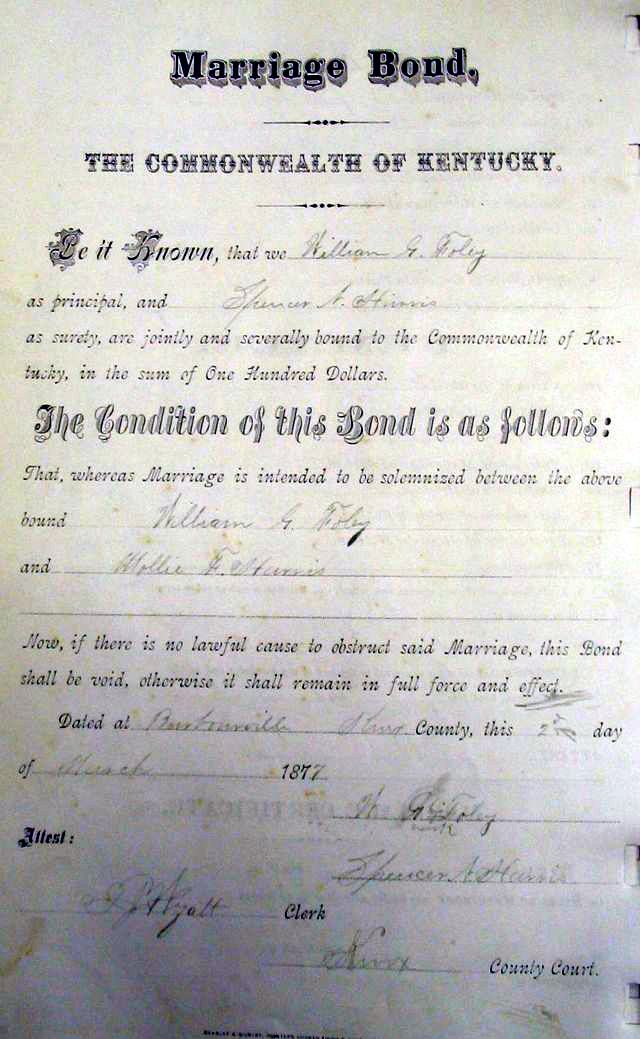 Marriage Bond.
THE COMMONWEALTH OF KENTUCKY.
Be it Known, that we William G. Foley
as principal, and Spencer N. Harris
as surety, are jointly and severally bound to the Commonwealth of Ken-
tucky, in the sum of One Hundred Dollars.
The Condition of this Bond is as follows:
That, whereas Marriage is intended to be solemnized between the above
bound William G. Foley
and Mollie F. Harris
Now, if there is no lawful cause to obstruct said Marriage, this Bond
shall be void, otherwise it shall remain in full force and effect.
Dated at Barbourville Knox County, this 2 day
of March 1877
W. G. Foley
Attest:
Spencer N. Harris
Wyatt Clerk
Knox County Court.